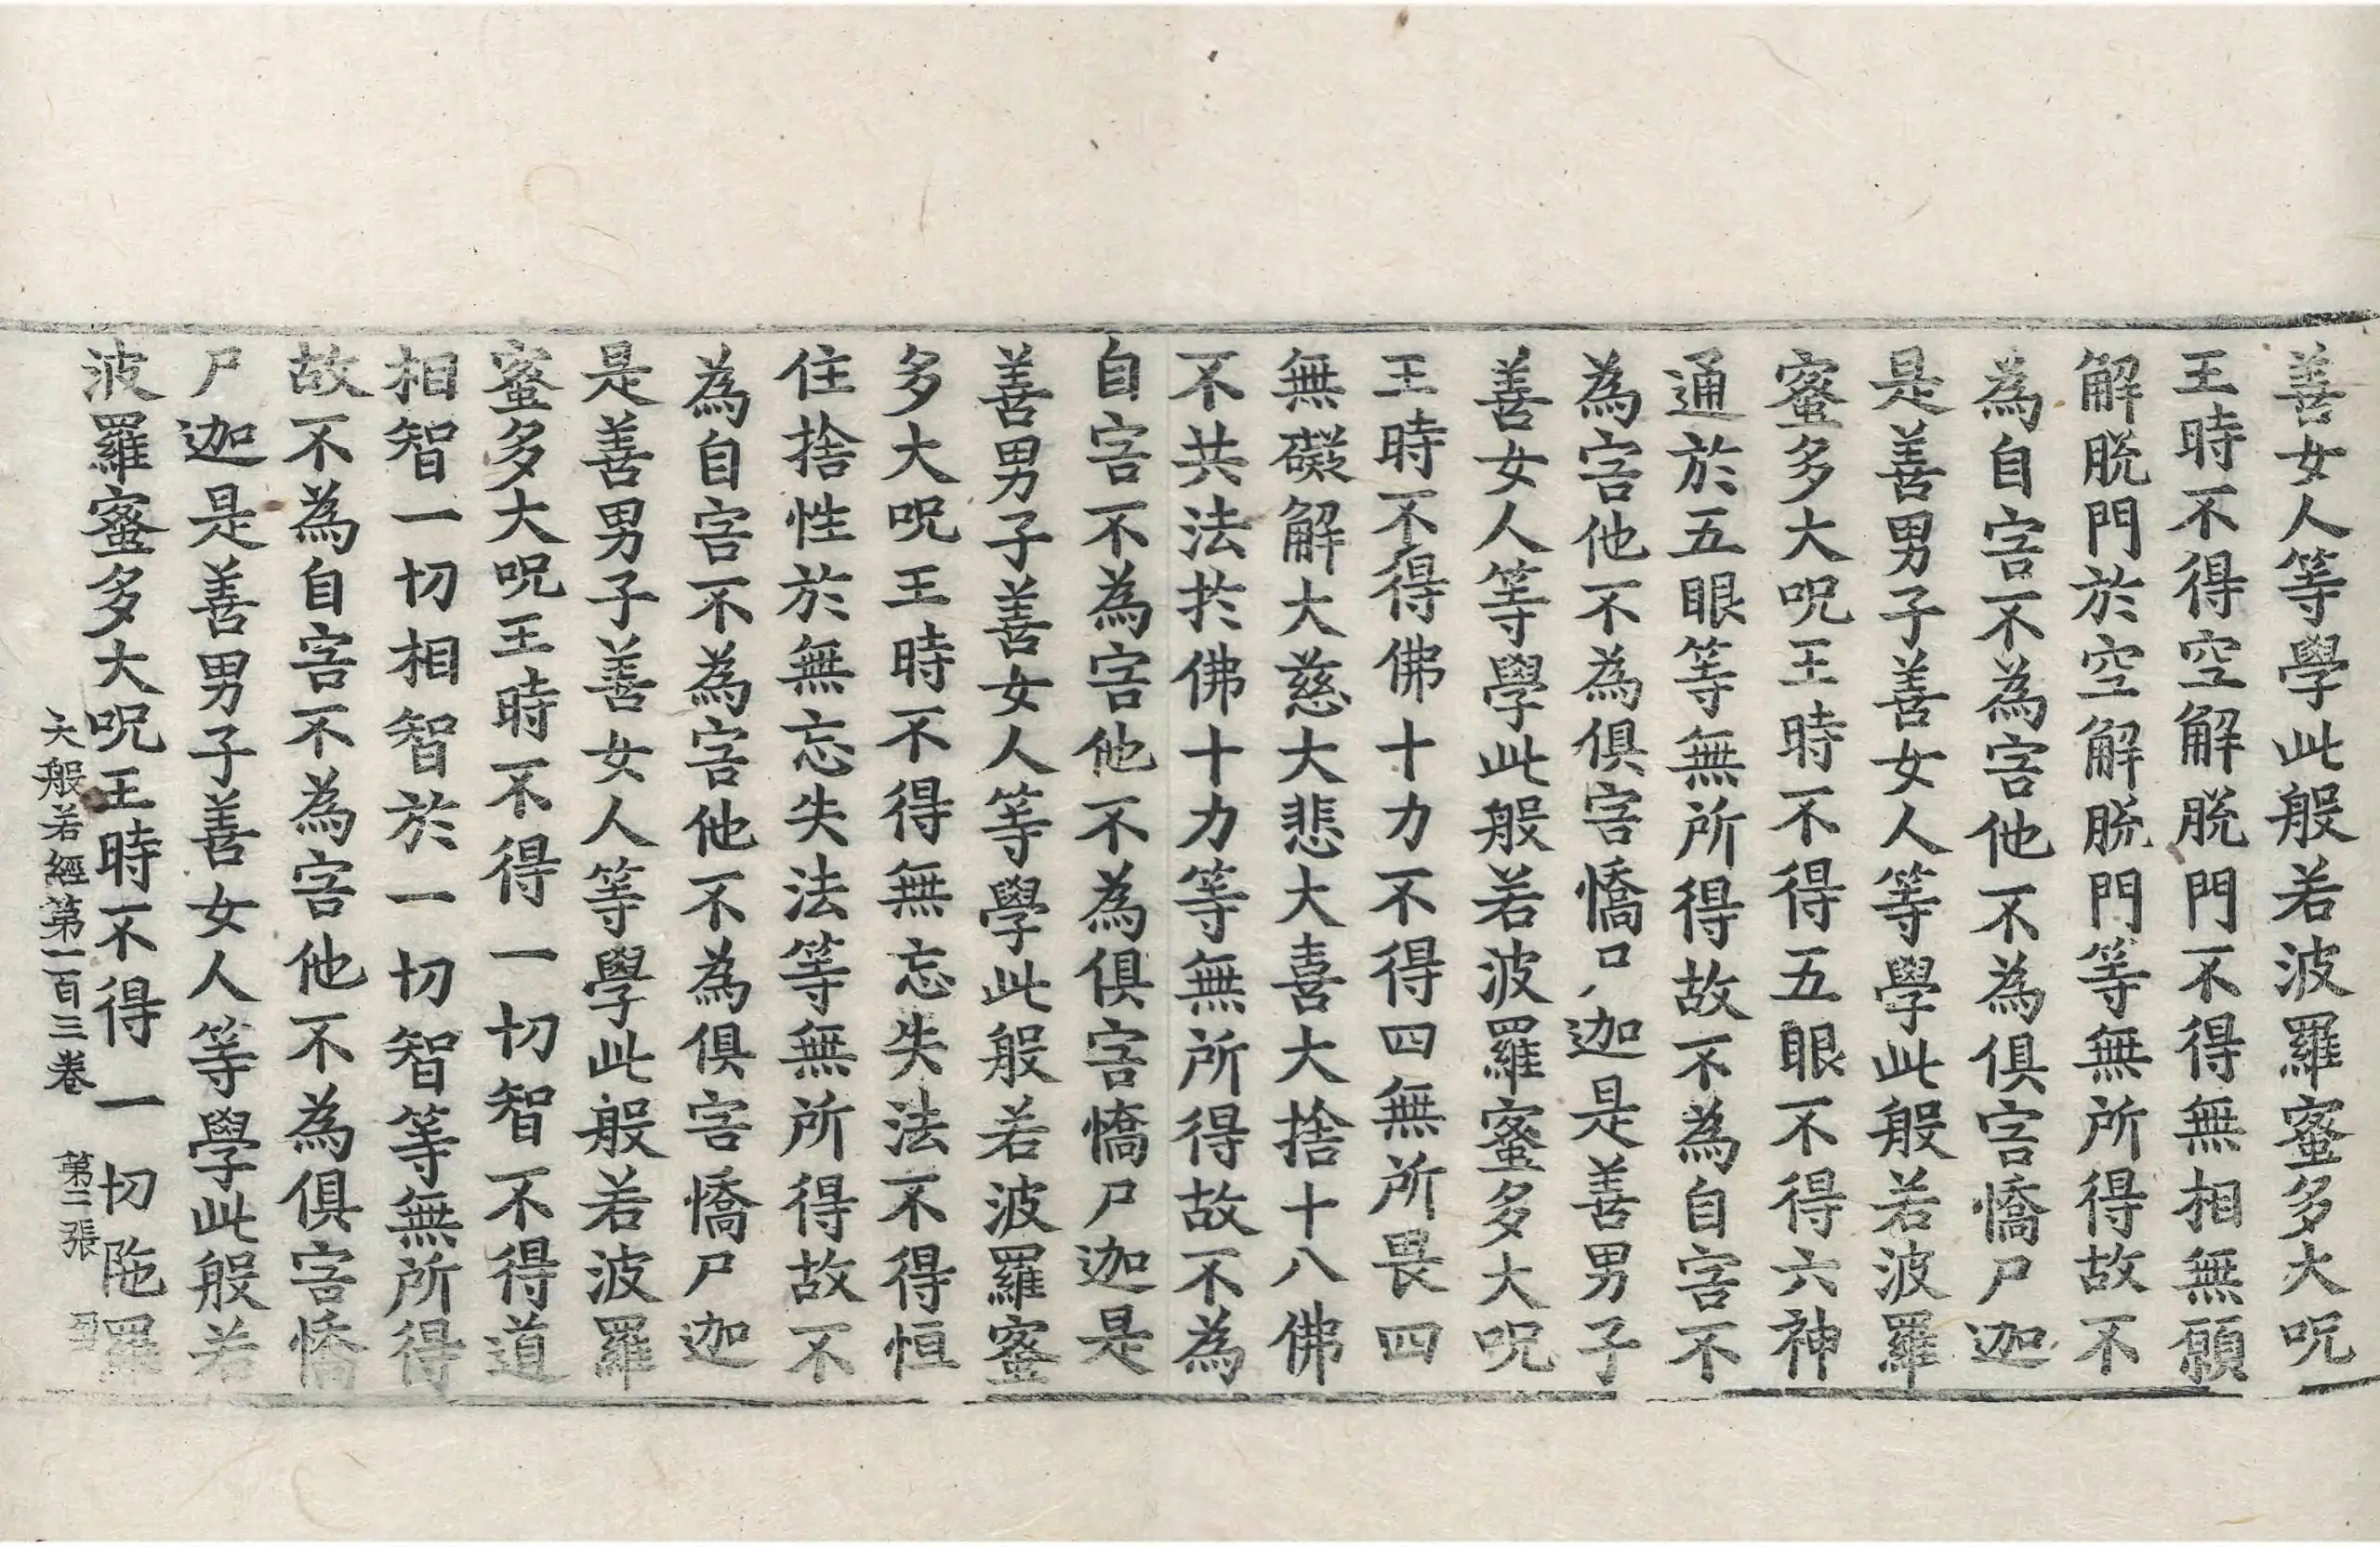 善女人等學此般若波羅蜜多大呪
王時不得空解脫門不得無相無願
解脫門於空解脫門等無所得故不
為自害不為害他不為俱害憍尸迦
是善男子善女人等學此般若波羅
蜜多大呪王時不得五眼不得六神
通於五眼等無所得故不為自害不
為害他不為俱害憍尸迦是善男子
善女人等學此般若波羅蜜多大呪
王時不得佛十力不得四無所畏四
無礙解大慈大悲大喜大捨十八佛
不共法於佛十力等無所得故不為
自害不為害他不為俱害憍尸迦是
善男子善女人等學此般若波羅蜜
多大呪王時不得無忘失法不得恒
住捨性於無忘失法等無所得故不
為自害不為害他不為俱害憍尸迦
是善男子善女人等學此般若波羅
蜜多大呪王時不得一切智不得道
相智一切相智於一切智等無所得
故不為自害不為害他不為俱害憍
尸迦是善男子善女人等學此般若
波羅蜜多大呪王時不得一切陁羅
大般若經第一百三卷 第二張